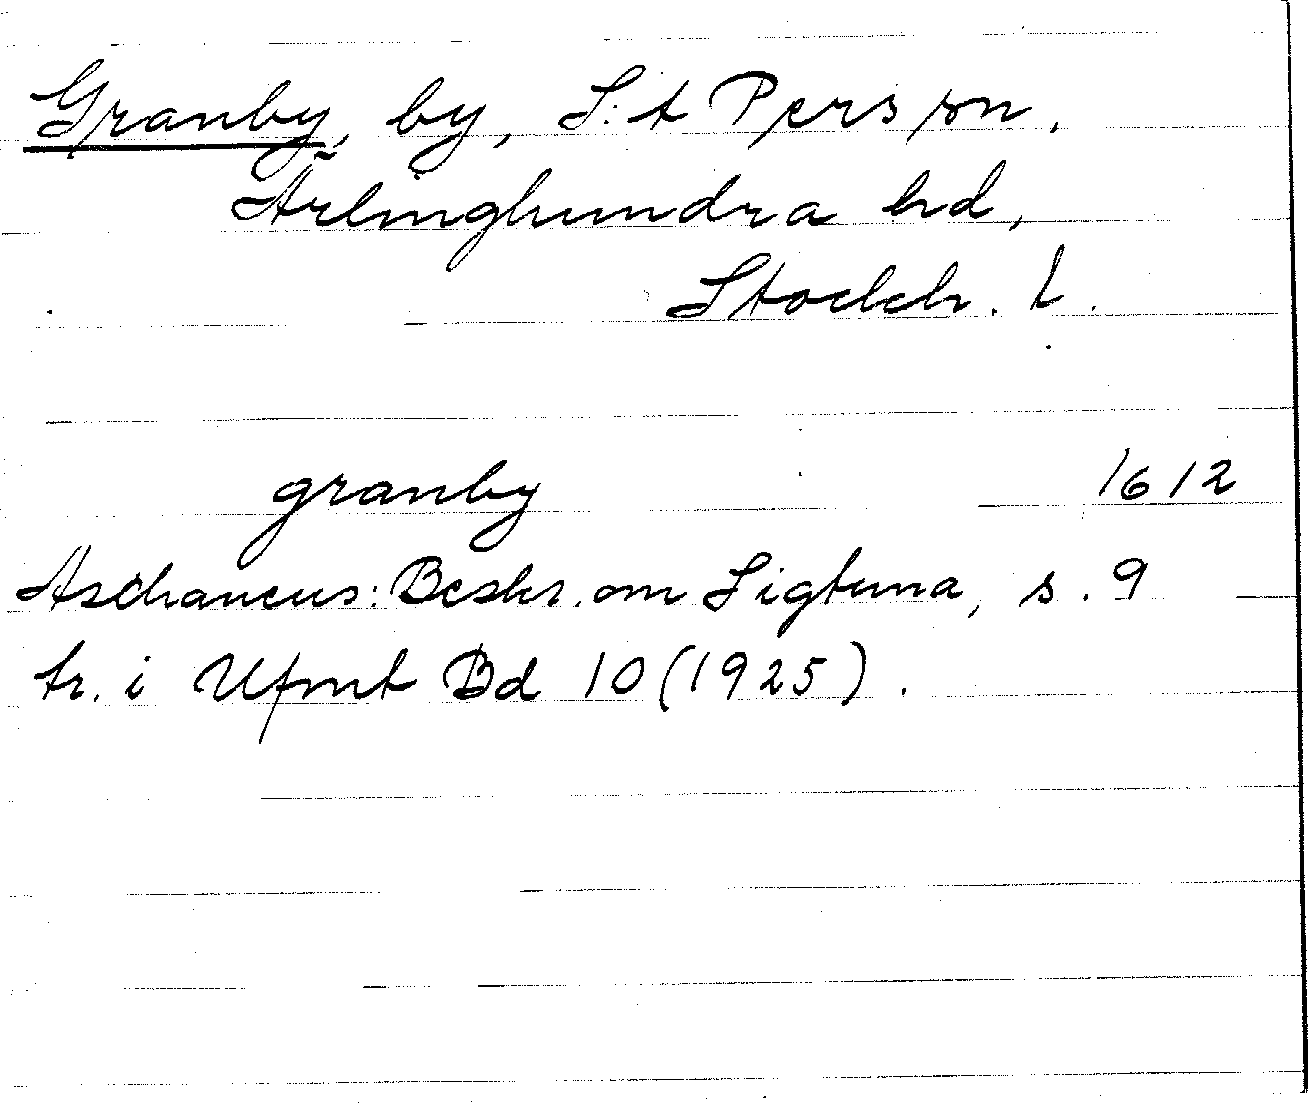 Granby, by, S:t Pers sn,
Ärlinghundra hd,
Stockh. l.
granby 1612
Aschaneus: Beskr. om Sigtuna, s. 9
tr. i Ufmt Bd 10 (1925).